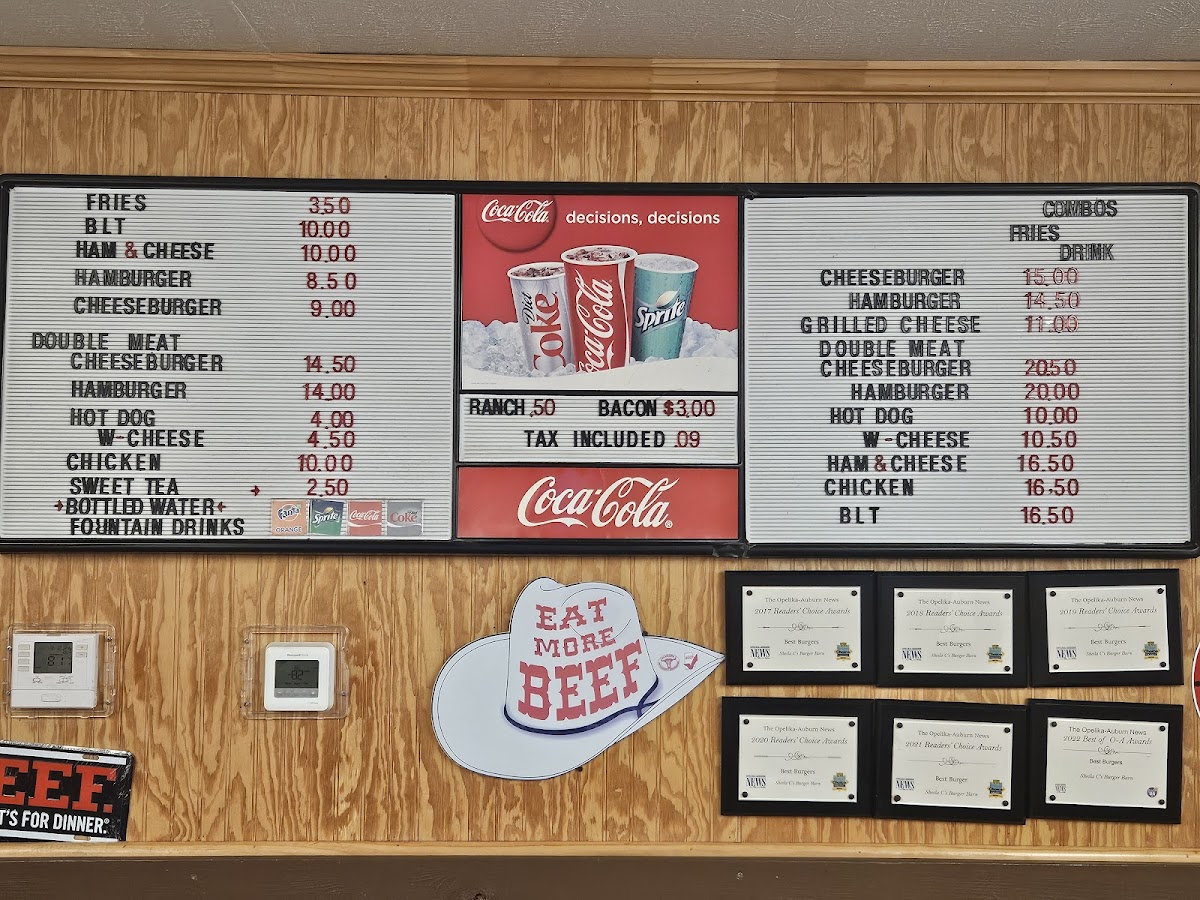 FRIES 3.50
BLT 10.00
HAM & CHEESE 10.00
HAMBURGER 8.50
CHEESEBURGER 9.00
DOUBLE MEAT
CHEESEBURGER 14.50
HAMBURGER 14.00
HOT DOG 4.00
W-CHEESE 4.50
CHICKEN 10.00
SWEET TEA 2.50
BOTTLED WATER
FOUNTAIN DRINKS
Fanta ORANGE Sprite Coca-Cola Diet Coke
Coca-Cola decisions, decisions
Diet Coke Coca-Cola Sprite
RANCH .50 BACON $3.00
TAX INCLUDED .09
Coca-Cola®
COMBOS
FRIES
DRINK
CHEESEBURGER 15.00
HAMBURGER 14.50
GRILLED CHEESE 11.00
DOUBLE MEAT
CHEESEBURGER 20.50
HAMBURGER 20.00
HOT DOG 10.00
W-CHEESE 10.50
HAM & CHEESE 16.50
CHICKEN 16.50
BLT 16.50
81
82
EAT
MORE
BEEF
The Opelika-Auburn News
2017 Readers' Choice Awards
Best Burgers
Sheila C's Burger Barn
NEWS
The Opelika-Auburn News
2018 Readers' Choice Awards
Best Burgers
Sheila C's Burger Barn
NEWS
The Opelika-Auburn News
2019 Readers' Choice Awards
Best Burgers
Sheila C's Burger Barn
NEWS
The Opelika-Auburn News
2020 Readers' Choice Awards
Best Burgers
Sheila C's Burger Barn
NEWS
The Opelika-Auburn News
2021 Readers' Choice Awards
Best Burger
Sheila C's Burger Barn
NEWS
The Opelika-Auburn News
2022 Best of O-A Awards
Best Burgers
Sheila C's Burger Barn
EEF.
T'S FOR DINNER.®